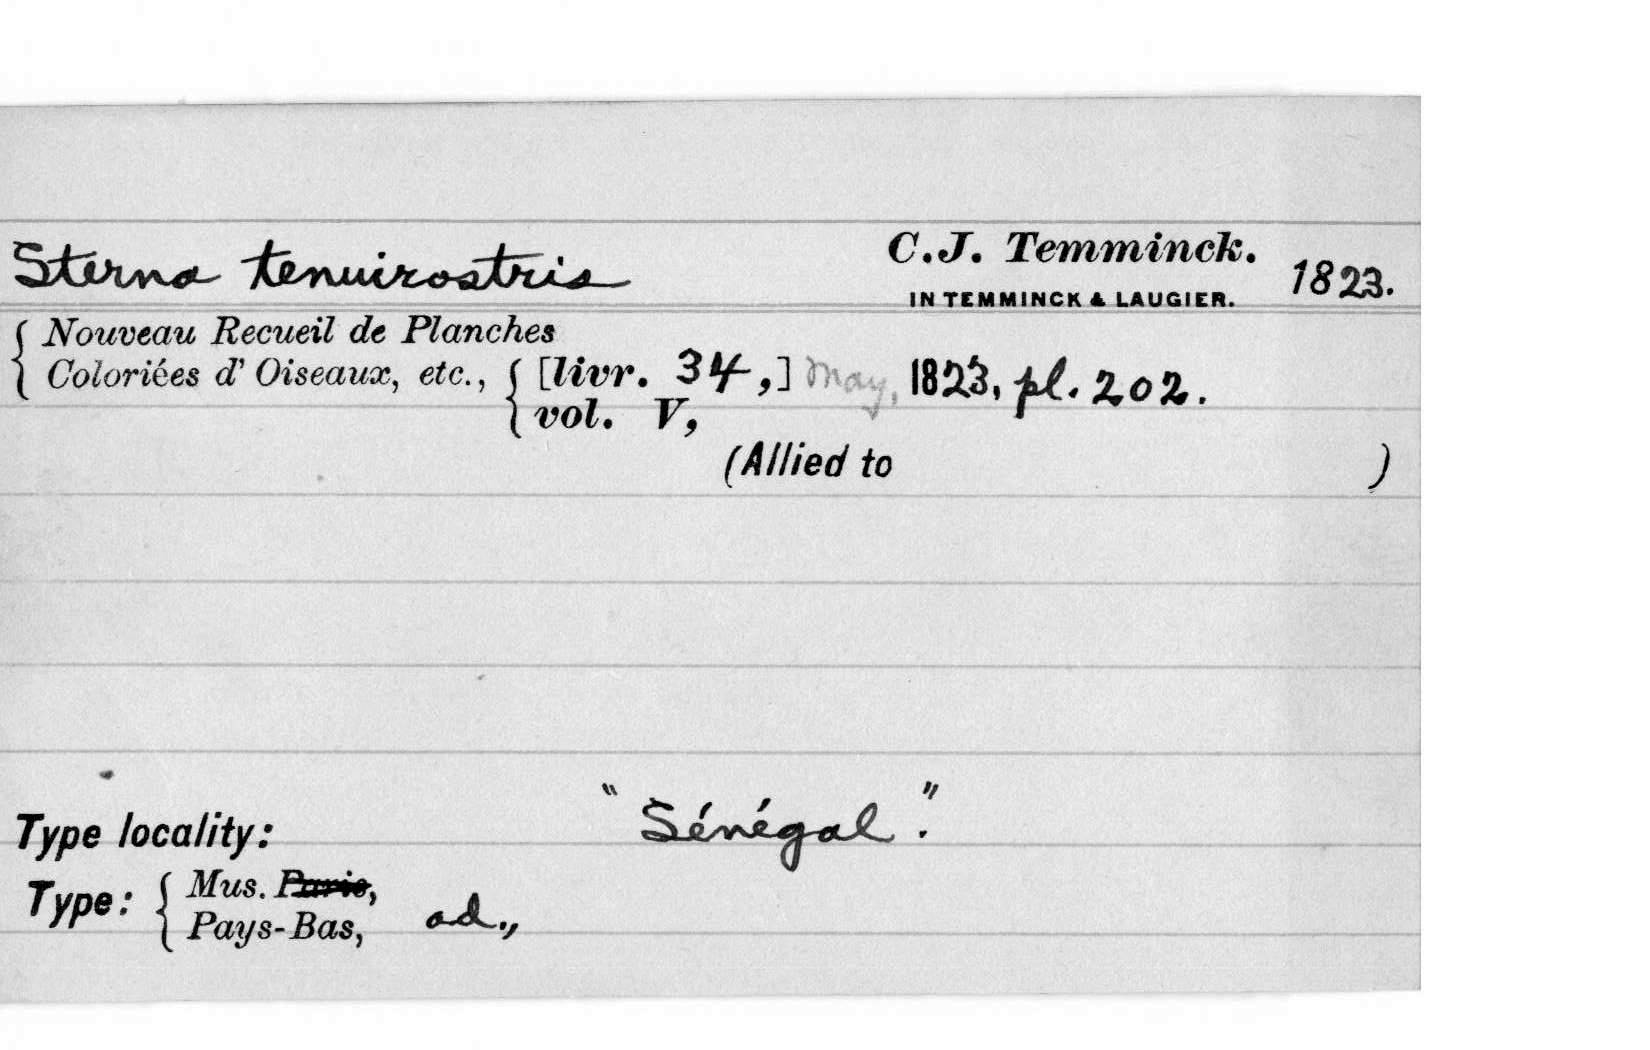 Sterna tenuirostris C.J. Temminck. 1823.
IN TEMMINCK & LAUGIER.
Nouveau Recueil de Planches
Coloriées d' Oiseaux, etc., [livr. 34,] May, 1823, pl. 202.
vol. V,
(Allied to )
Type locality: "Sénégal".
Type: Mus. Paris,
Pays-Bas, ad.,